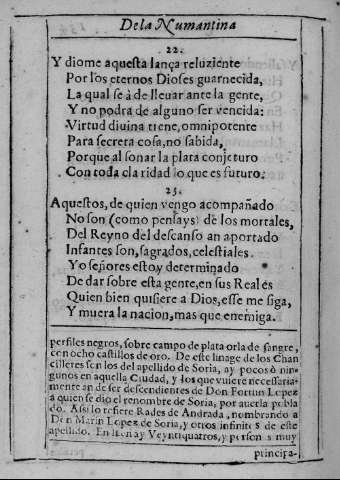 De la Numantina
22.
Y diome aquesta lança reluziente
Por los eternos Dioses guarnecida,
La qual se à de lleuar ante la gente,
Y no podra de alguno ser vencida:
Virtud diuina tiene, omnipotente
Para secreta cosa, no sabida,
Porque al sonar la plata conjeturo
Con toda claridad lo que es futuro.
23.
Aquestos, de quien vengo acompañado
No son (como pensays) de los mortales,
Del Reyno del descanso an aportado
Infantes son, sagrados, celestiales.
Yo señores estoy determinado
De dar sobre esta gente, en sus Reales
Quien bien quisiere a Dios, esse me siga,
Y muera la nacion, mas que enemiga.
perfiles negros, sobre campo de plata orla de sangre,
con ocho castillos de oro. De este linage de los Chan
cilleres son los del apellido de Soria, ay pocos ò nin-
gunos en aquella Ciudad, y los que viuiere necessaria-
mente an de ser descendientes de Don Fortun Lopez
a quien se dio el renombre de Soria, por auerla pobla
do. Assi lo refiere Rades de Andrada, nombrando a
Don Marin Lopez de Soria, y otros infinitos de este
apellido. En Veyntiquatros, y personas muy
principa-